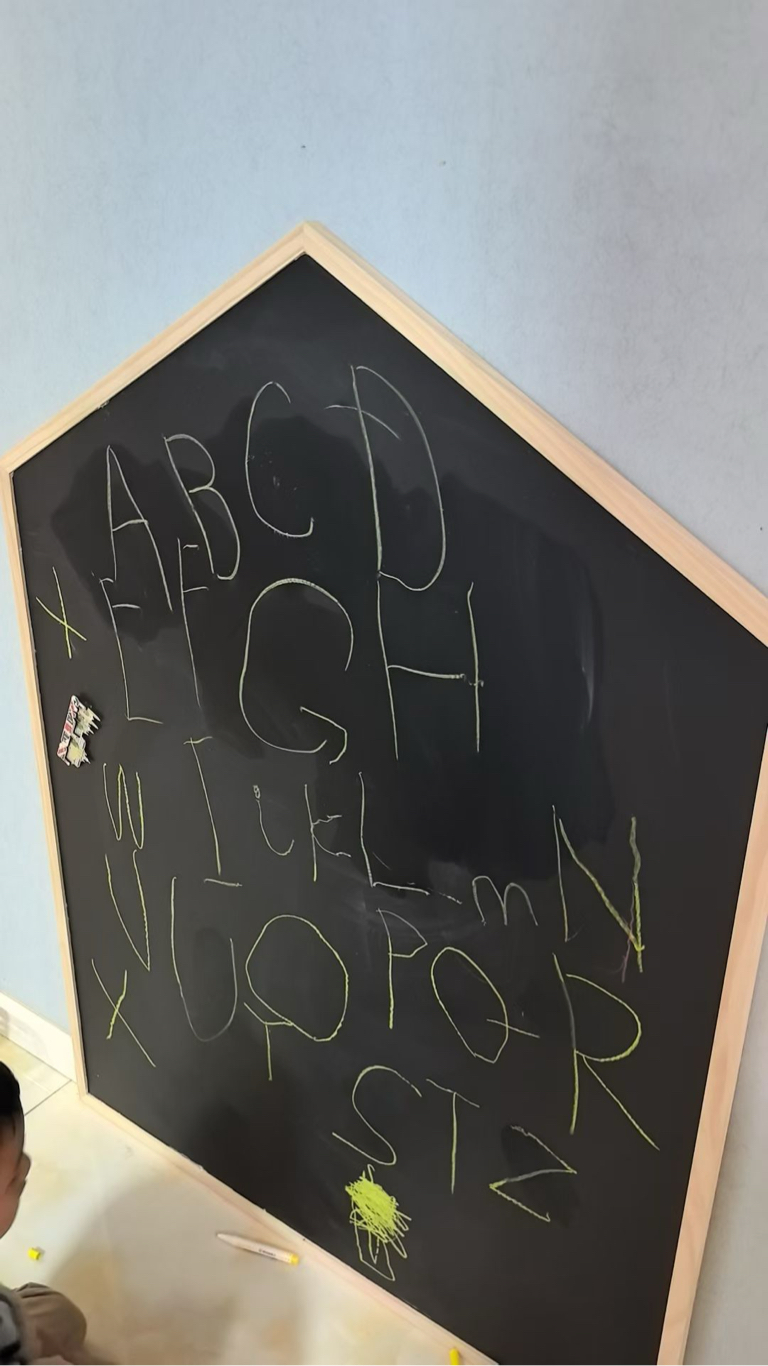 A B C D
E F G H
X
W I J K L m N
V U O P Q R
X T
S T Z